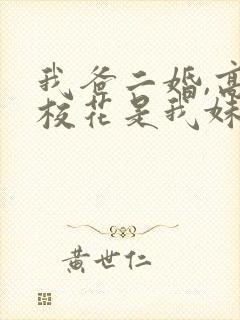 我爸二婚,高
校花是我妹
黄世仁